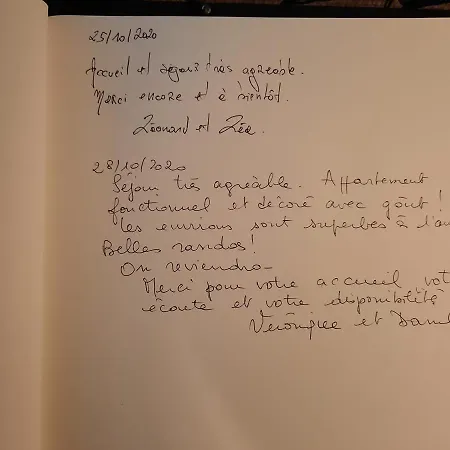 25/10/2020
Accueil et séjour très agréable.
Merci encore et à bientôt.
Léonard et Zée.
28/10/2020
Séjour très agréable. Appartement
fonctionnel et décoré avec goût !
Les environs sont superbes à l'au
Belles randos !
On reviendra
Merci pour votre accueil, vot
écoute et votre disponibilité
Véronique et